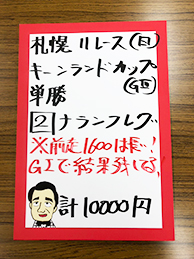 札幌 11レース(日)
キーンランドカップ(GⅢ)
単勝
2 ナランフレグ
※前走1600は長い!
GⅠで結果残してる。
計10000円